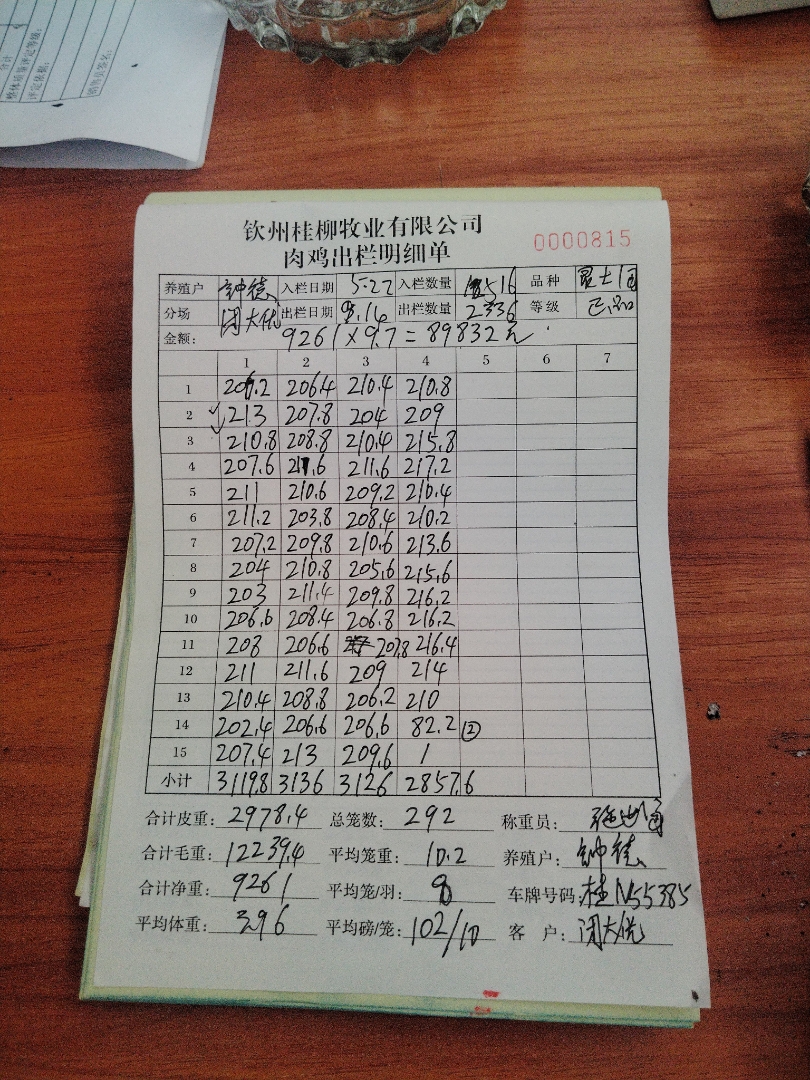 合计
整体质量评定等级:
评定依据:
钦州桂柳牧业有限公司
肉鸡出栏明细单
0000815
养殖户 钟德 入栏日期 5-27 入栏数量 516 品种
分场 闭大优 出栏日期 9.14 出栏数量 2336 等级
金额: 9261×9.7=89832元
1 2 3 4 5 6 7
1 206.2 206.4 210.4 210.8
2 213 207.8 204 209
3 210.8 208.8 210.4 215.8
4 207.6 211.6 211.6 217.2
5 211 210.6 209.2 210.4
6 211.2 203.8 208.4 210.2
7 207.2 209.8 210.6 213.6
8 204 210.8 205.6 215.6
9 203 211.4 209.8 216.2
10 206.6 208.4 206.8 216.2
11 208 206.6 207.8 216.4
12 211 211.6 209 214
13 210.4 208.8 206.2 210
14 202.4 206.6 206.6 82.2 ②
15 207.4 213 209.6 /
小计 3119.8 3136 3126 2857.6
合计皮重: 2978.4 总笼数: 292 称重员:
合计毛重: 12239.4 平均笼重: 10.2 养殖户: 钟德
合计净重: 9261 平均笼/羽: 8 车牌号码: 桂N55385
平均体重: 3.96 平均磅/笼: 102/10 客户: 闭大优